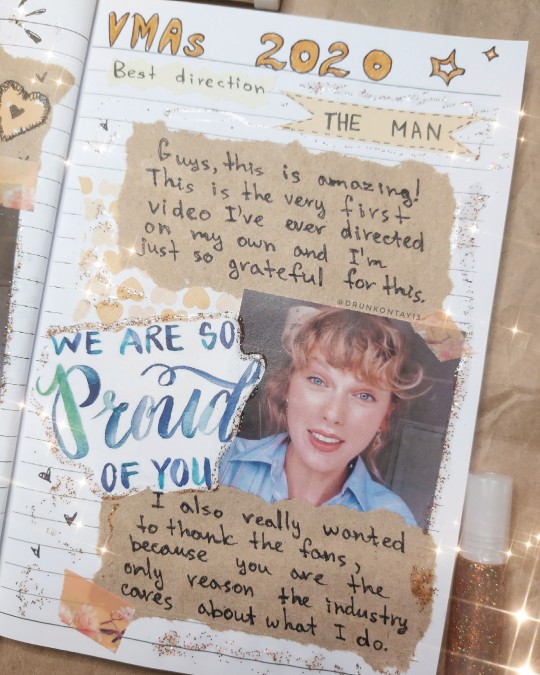 VMAs 2020
Best direction
THE MAN
Guys, this is amazing!
This is the very first
video I've ever directed
on my own and I'm
just so grateful for this.
@DRUNKONTAY13
WE ARE SO
Proud
OF YOU
I also really wanted
to thank the fans,
because you are the
only reason the industry
cares about what I do.